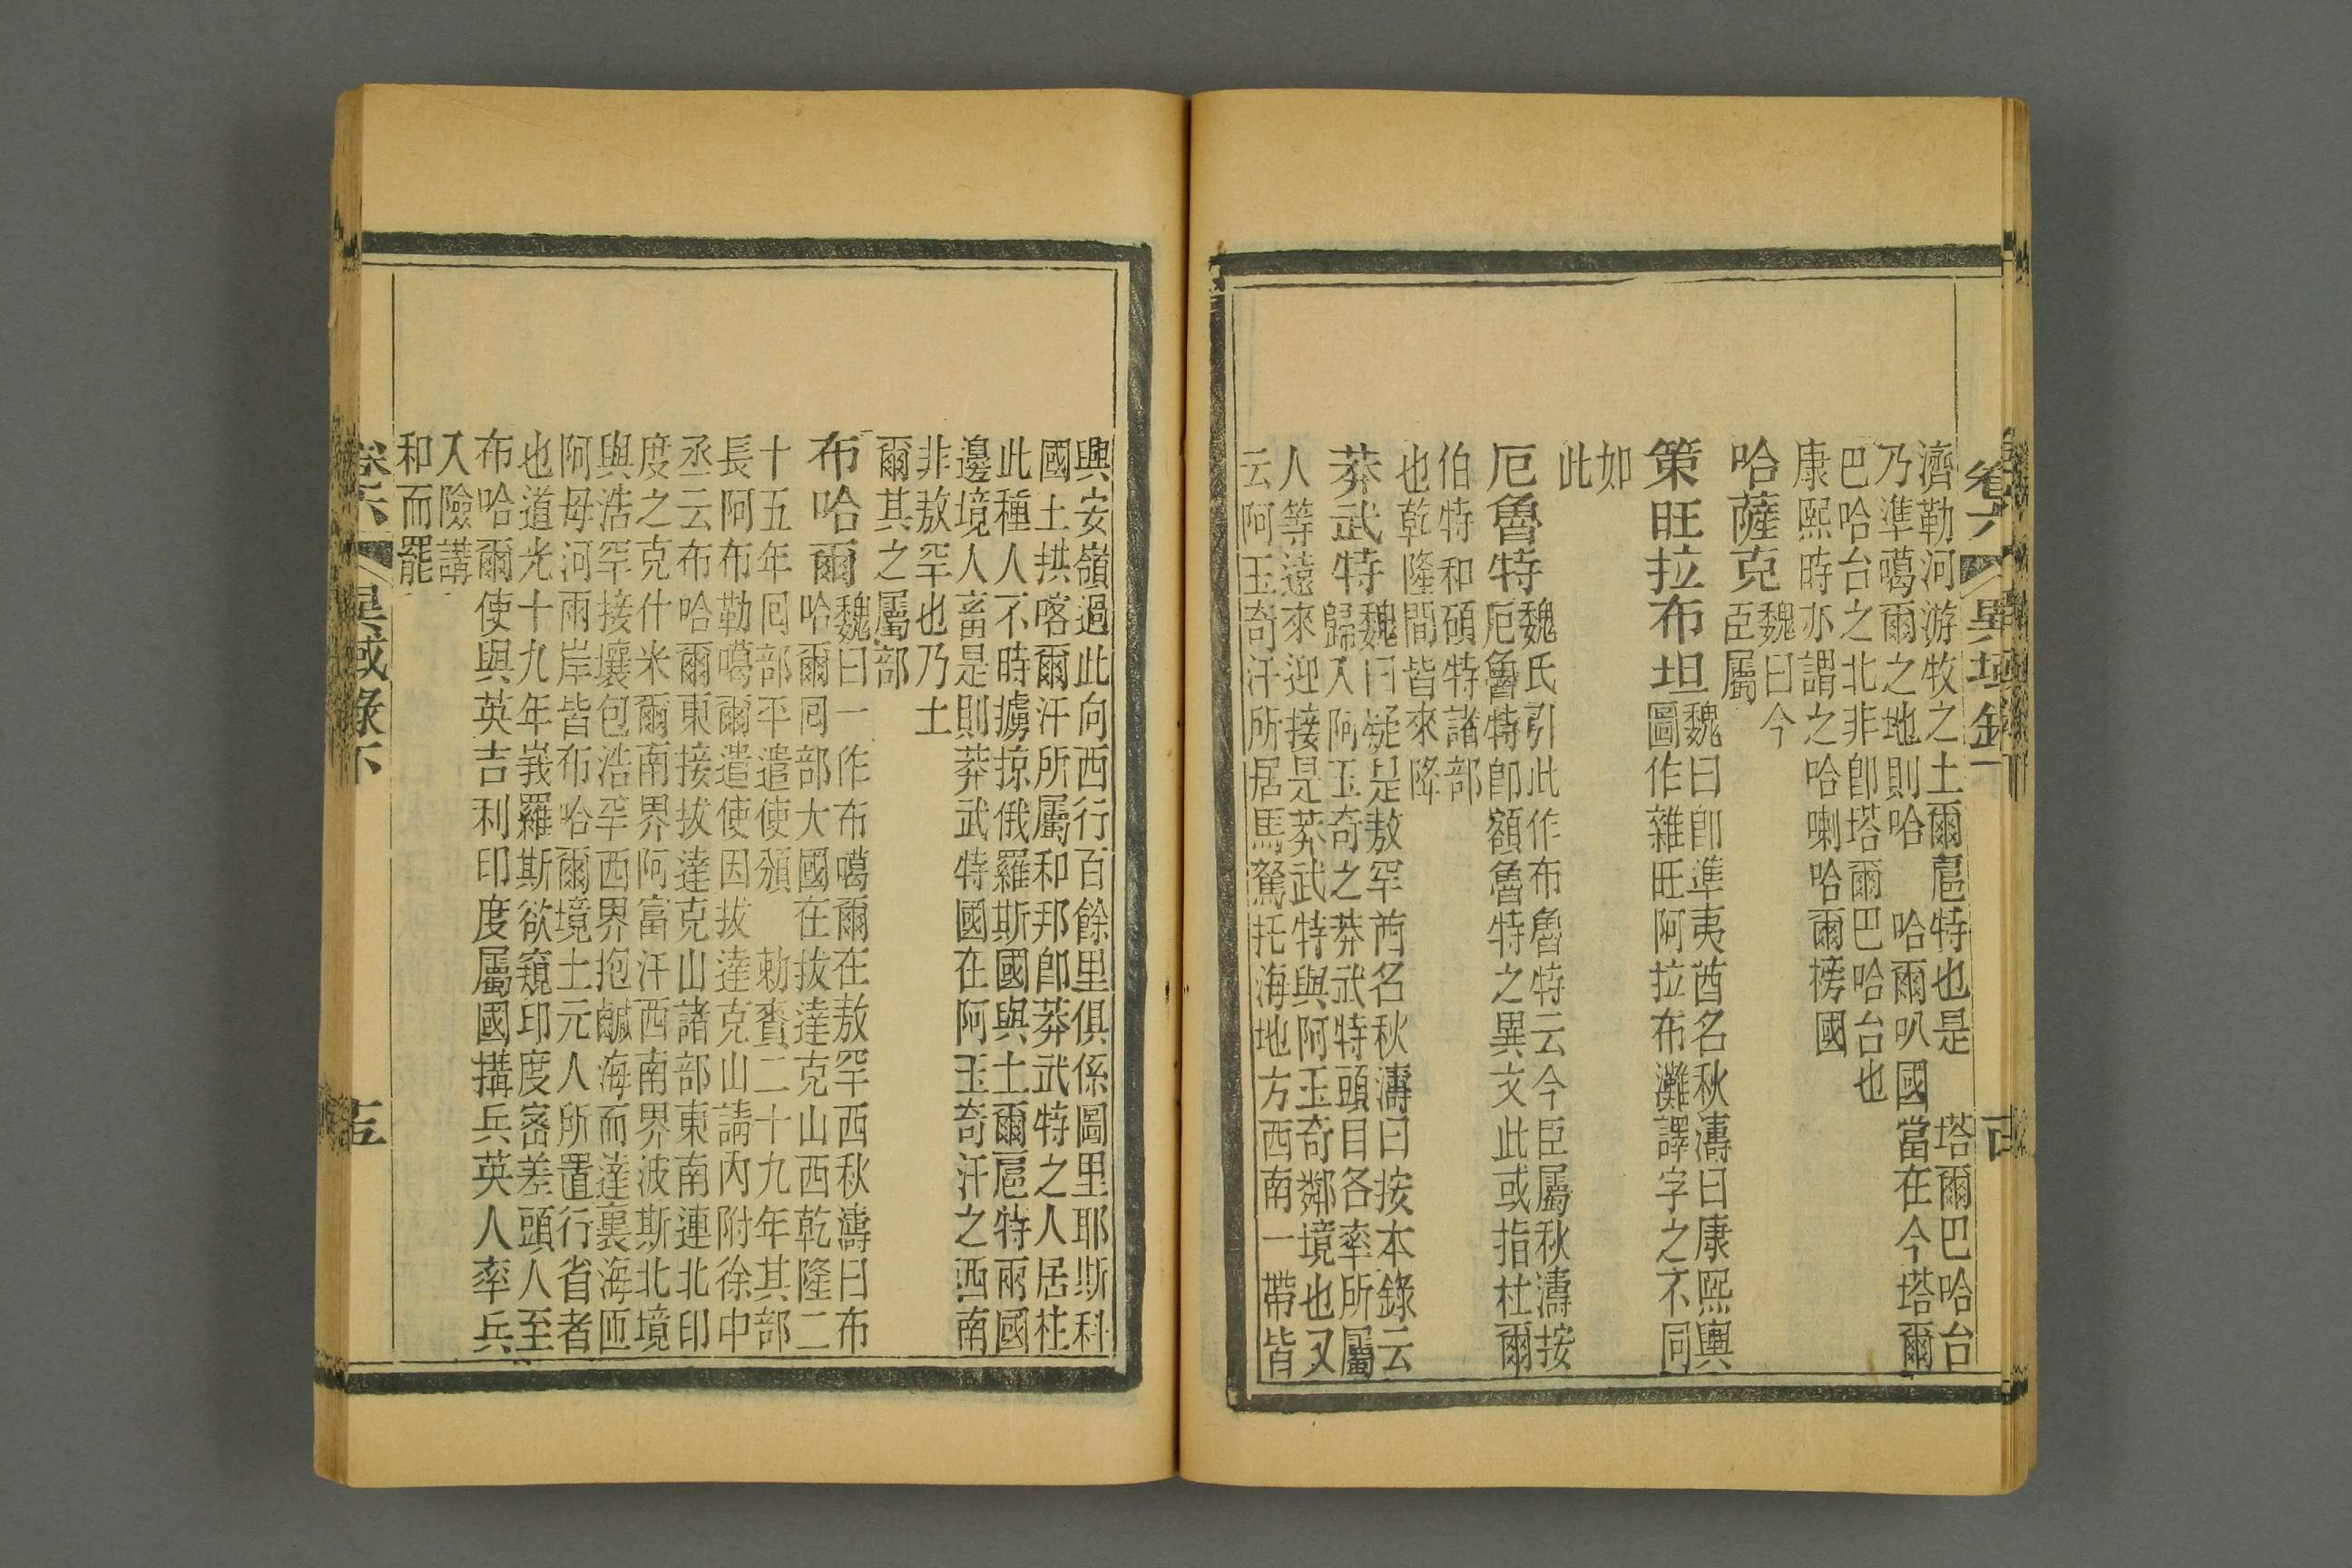 卷六 異域錄
濟勒河游牧之土爾扈特也是 塔爾巴哈台
乃準噶爾之地則哈 哈爾叭國當在今塔爾
巴哈台之北非卽塔爾巴哈台也
康熙時亦謂之哈喇哈爾榜國
哈薩克 魏曰今
臣屬
策旺拉布坦 魏曰卽準夷酋名秋濤曰康熙輿
圖作雜旺阿拉布灘譯字之不同
如
此
厄魯特 魏氏引此作布魯特云今臣屬秋濤按
厄魯特卽額魯特之異文此或指杜爾
伯特和碩特諸部
也乾隆間皆來降
莽武特 魏曰疑是敖罕酋名秋濤曰按本錄云
歸入阿玉奇之莽武特頭目各率所屬
人等遠來迎接是莽武特與阿玉奇鄰境也又
云阿玉奇汗所居馬駑托海地方西南一帶皆
興安嶺過此向西行百餘里俱係圖里耶斯科
國土拱喀爾汗所屬和邦卽莽武特之人居住
此種人不時擄掠俄羅斯國與土爾扈特兩國
邊境人畜是則莽武特國在阿玉奇汗之西南
非敖罕也乃土
爾其之屬部
布哈爾 魏曰一作布噶爾在敖罕西秋濤曰布
哈爾囘部大國在拔達克山西乾隆二
十五年囘部平遣使頒 勅賚二十九年其部
長阿布勒噶爾遣使因拔達克山請內附徐中
丞云布哈爾東接拔達克山諸部東南連北印
度之克什米爾南界阿富汗西南界波斯北境
與浩罕接壤包浩罕西界抱鹹海而達裏海匝
阿母河兩岸皆布哈爾境土元人所置行省者
也道光十九年峩羅斯欲窺印度密差頭人至
布哈爾使與英吉利印度屬國搆兵英人率兵
入險講
和而罷
卷六 異域錄下